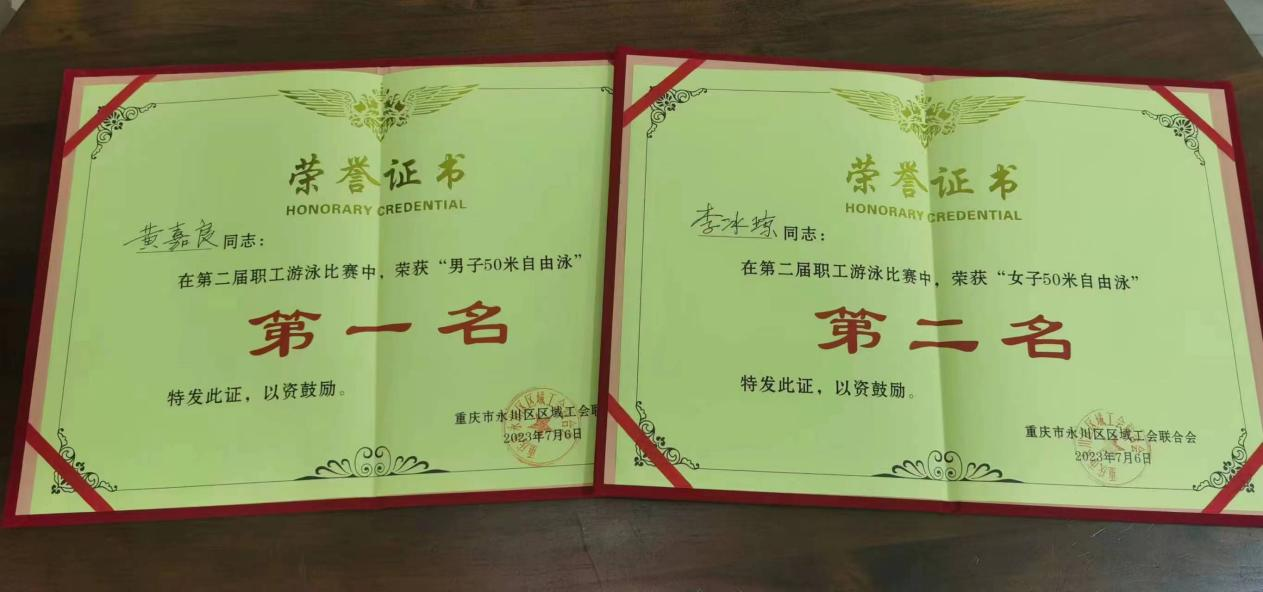 荣誉证书
HONORARY CREDENTIAL
黄嘉良同志：
在第二届职工游泳比赛中，荣获“男子50米自由泳”
第一名
特发此证，以资鼓励。
重庆市永川区区域工会联
2023年7月6日
荣誉证书
HONORARY CREDENTIAL
李冰琼同志：
在第二届职工游泳比赛中，荣获“女子50米自由泳”
第二名
特发此证，以资鼓励。
重庆市永川区区域工会联合会
2023年7月6日